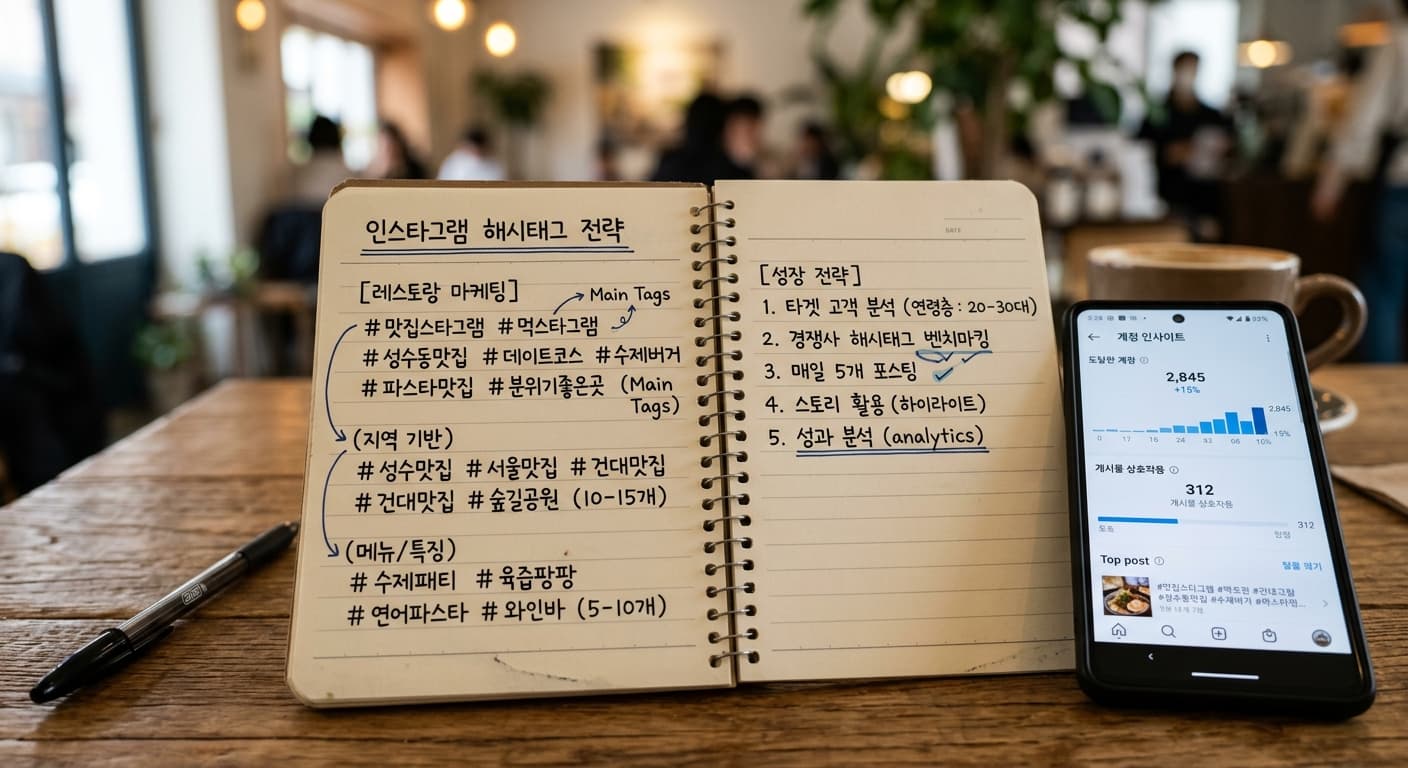 인스타그램 해시태그 전략
[레스토랑 마케팅]
Main Tags
#맛집스타그램 #먹스타그램
#성수동맛집 #데이트코스 #수제버거
#파스타맛집 #분위기좋은곳 (Main
Tags)
(지역 기반)
#성수맛집 #서울맛집 #건대맛집
#건대맛집 #숲길공원 (10-15개)
(메뉴/특징)
#수제패티 #육즙팡팡
#연어파스타 #와인바 (5-10개)
DATE
[성장 전략]
1. 타겟 고객 분석 (연령층: 20-30대)
2. 경쟁사 해시태그 벤치마킹
3. 매일 5개 포스팅
4. 스토리 활용 (하이라이트)
5. 성과 분석 (analytics)
계정 인사이트
2,845
+15%
2,845
15%
0 17 16 24 10%
게시물 상호작용
312
게시물 상호작용
312
Top post